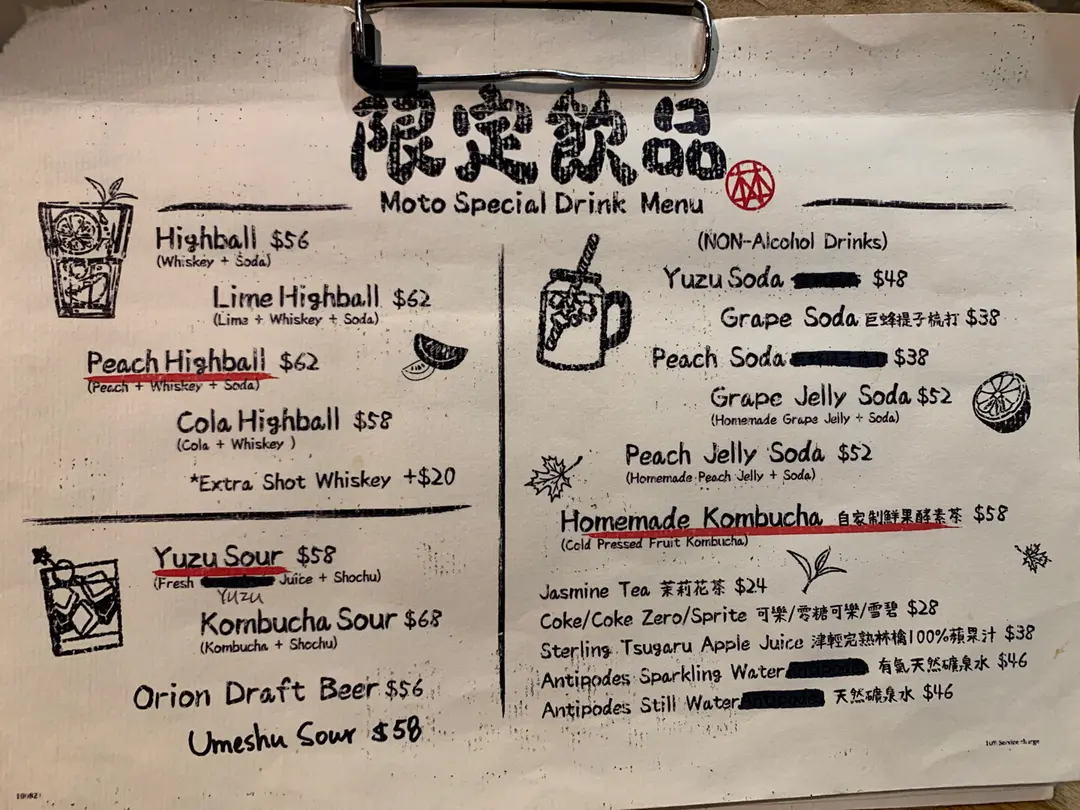 限定飲品
林
Moto Special Drink Menu
Highball $56
(Whiskey + Soda)
Lime Highball $62
(Lime + Whiskey + Soda)
Peach Highball $62
(Peach + Whiskey + Soda)
Cola Highball $58
(Cola + Whiskey )
*Extra Shot Whiskey +$20
Yuzu Sour $58
(Fresh Juice + Shochu)
Yuzu
Kombucha Sour $68
(Kombucha + Shochu)
Orion Draft Beer $56
Umeshu Sour $58
(NON-Alcohol Drinks)
Yuzu Soda $48
Grape Soda 巨蜂提子梳打 $38
Peach Soda $38
Grape Jelly Soda $52
(Homemade Grape Jelly + Soda)
Peach Jelly Soda $52
(Homemade Peach Jelly + Soda)
Homemade Kombucha 自家制鮮果酵素茶 $58
(Cold Pressed Fruit Kombucha)
Jasmine Tea 茉莉花茶 $24
Coke/Coke Zero/Sprite 可樂/零糖可樂/雪碧 $28
Sterling Tsugaru Apple Juice 津輕完熟林檎100%蘋果汁 $38
Antipodes Sparkling Water 有氣天然礦泉水 $46
Antipodes Still Water 天然礦泉水 $46
10% Service charge